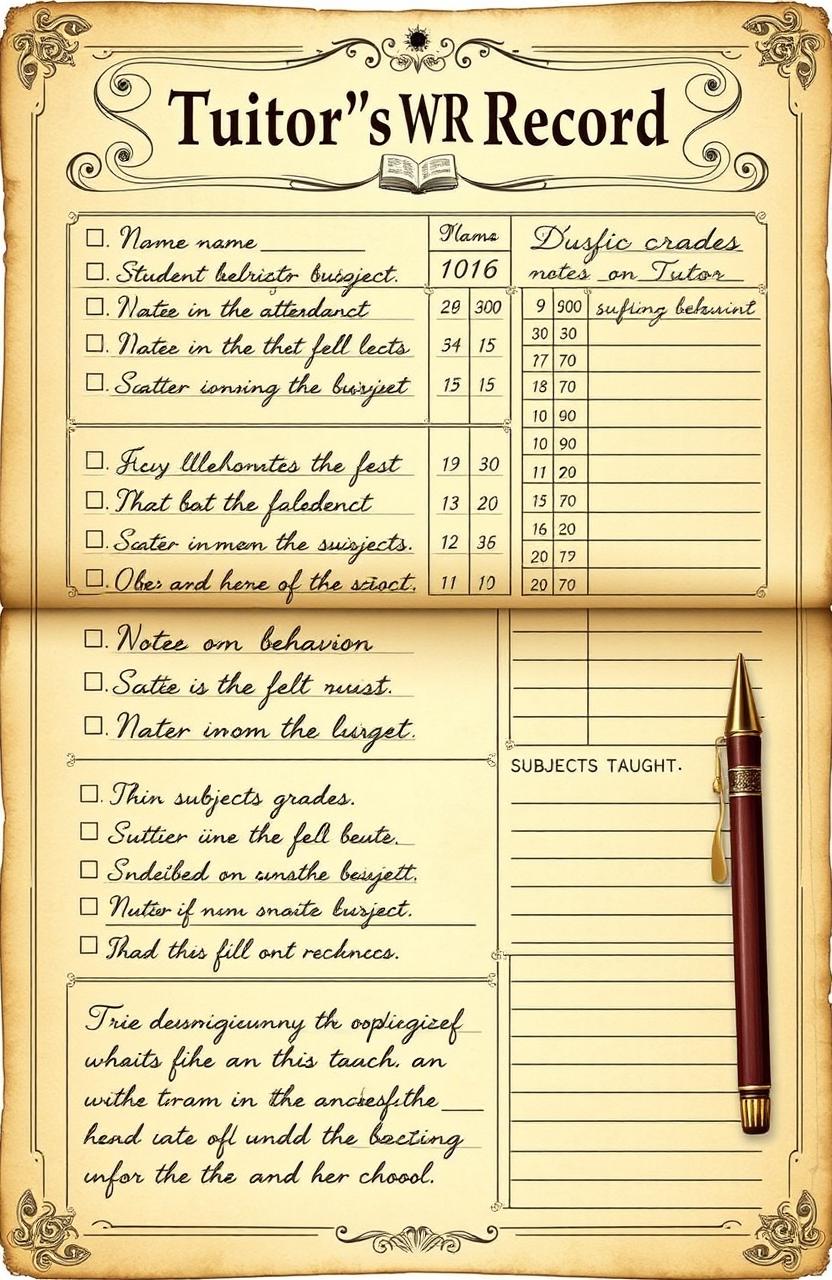 Tuitor"s WR Record
Name name
Name
Dusfic crades
Student belricto busject.
1016
notes on Tutor
Natee in the atterdanct
29 300
9 900 sufting
30 30
Natee in the thet fell lects
34 15
17 70
Scatter ionsing the
15 15
18 70
10 90
10 90
the fest
19 30
11 20
That bat the faledenct
13 20
15 70
Scater inmem the suisjects.
12 36
16 20
20 79
Obes and hene of the stioct.
11 10
20 70
Notee om behavion
Satte is the felt ruist.
Nater inom the lurget.
SUBJECTS TAUGHT.
Thin subjects grades.
Suttier üne the fell beute.
Sndeibed on the
Nutier if num snaite busject.
Thad this fill ont recknccs.
Trie th
whaits fihe an this taach. an
withe tram in the
hend iate ofl undd the bacting
unfor the the and her choool.